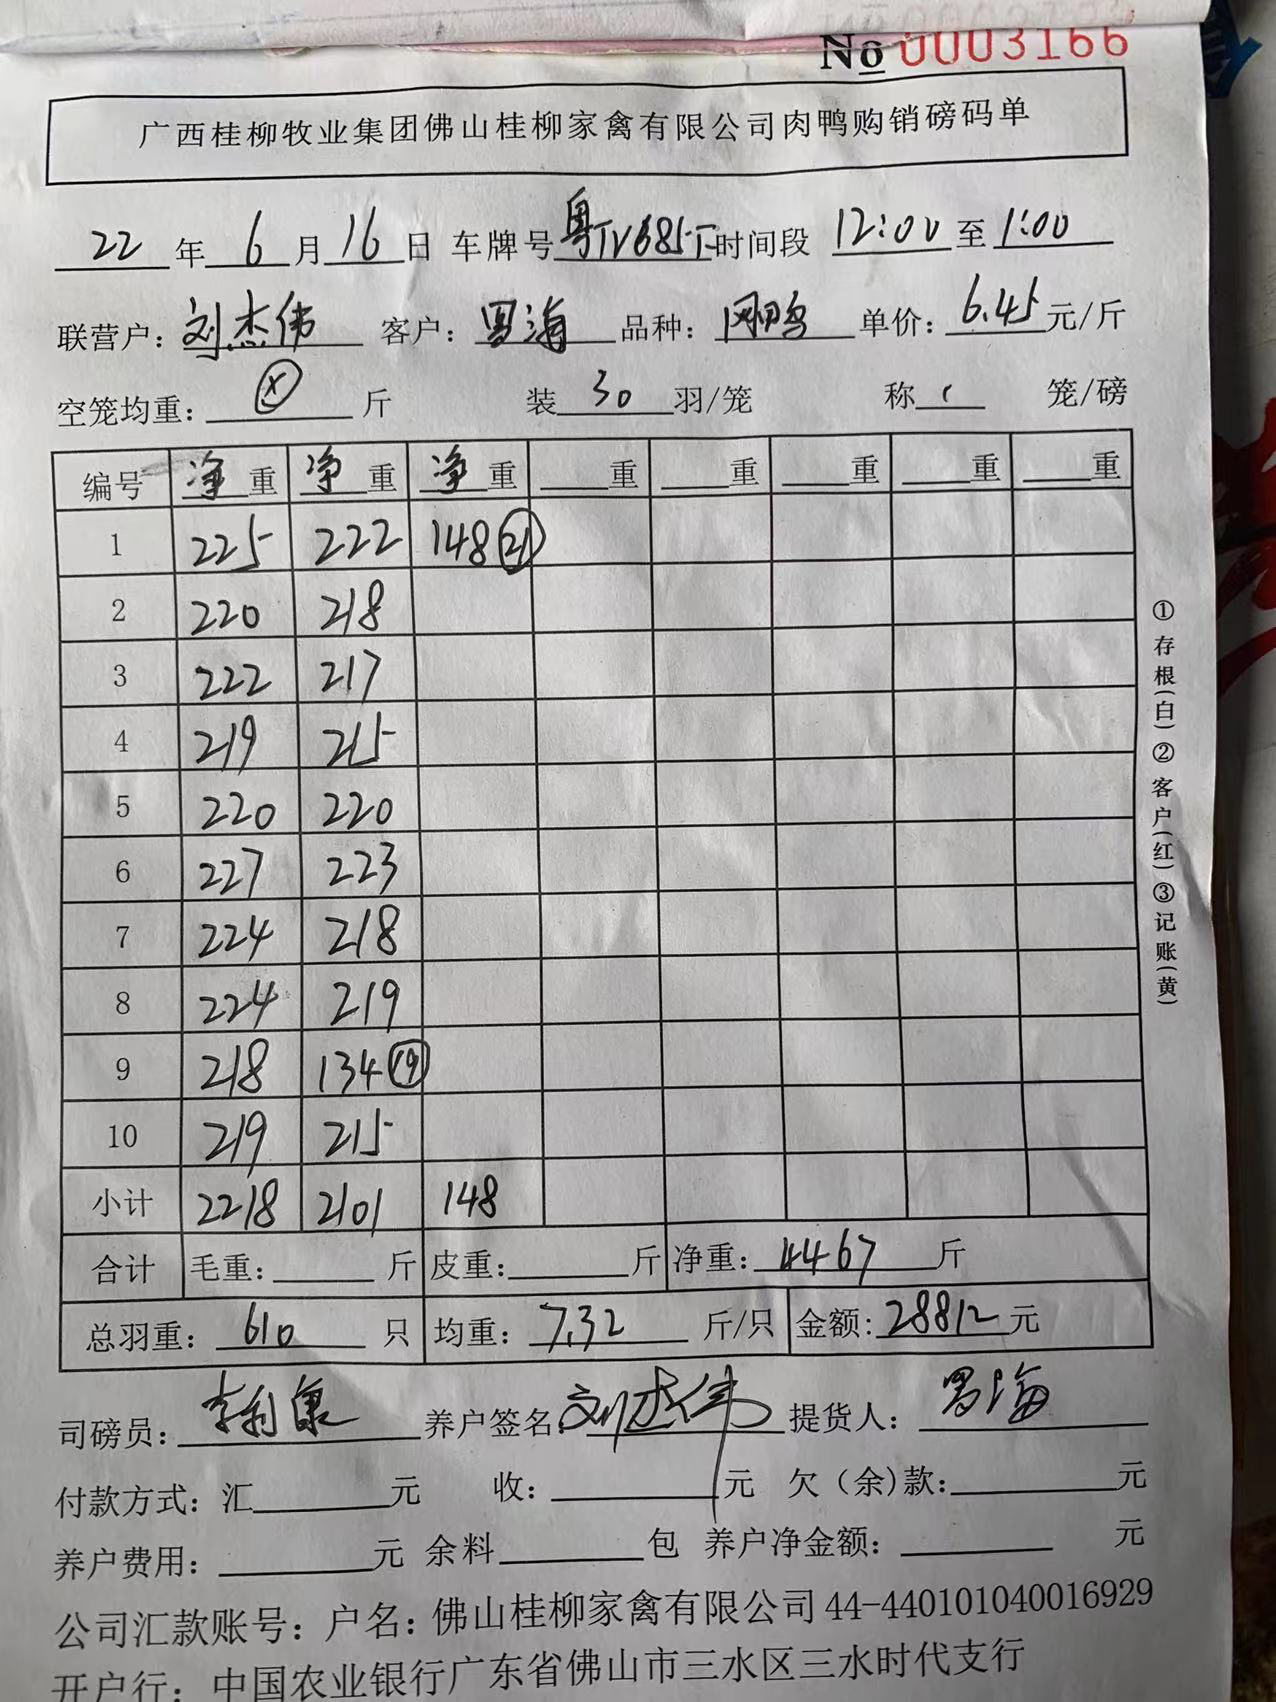 № 0003166
广西桂柳牧业集团佛山桂柳家禽有限公司肉鸭购销磅码单
22年6月16日 车牌号 粤 时间段 12:00至1:00
联营户：刘杰伟 客户：罗海 品种： 单价：6.45元/斤
空笼均重：ⓧ斤 装30羽/笼 称1笼/磅
编号 净重 净重 净重 重 重 重 重 重
1 225 222 148 ㉑
2 220 218
3 222 217
4 219 215
5 220 220
6 227 223
7 224 218
8 224 219
9 218 134 ⑲
10 219 215
小计 2218 2101 148
合计 毛重：斤 皮重：斤 净重：4467斤
总羽重：610只 均重：7.32斤/只 金额：28812元
司磅员：李利康 养户签名：刘杰伟 提货人：罗海
付款方式：汇元 收：元 欠（余)款：元
养户费用：元 余料包 养户净金额：元
公司汇款账号：户名：佛山桂柳家禽有限公司 44-440101040016929
开户行：中国农业银行广东省佛山市三水区三水时代支行
①存根(白)②客户(红)③记账(黄)